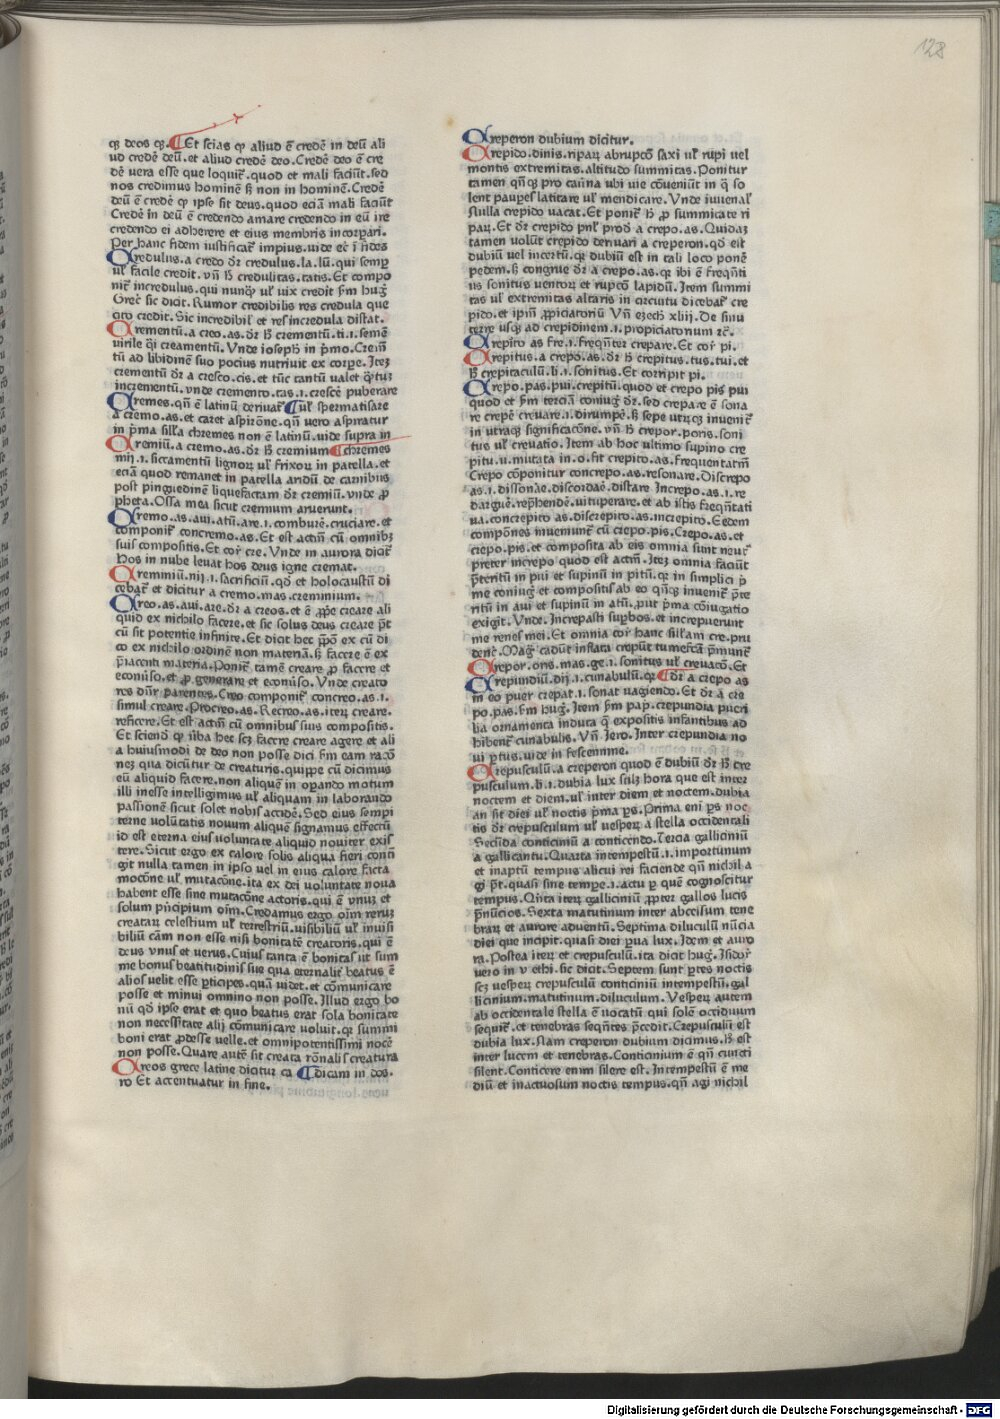 128
qʒ deos qʒ. Et scias qp aliud ē credē in deū ali
ud credē deū. et aliud credē deo. Credē deo ē cre
dē vera esse que loquit᷑. quod et mali faciūt. sed
nos credimus hominē sʒ non in hominē. Credē
deū ē credē qp ipse sit deus. quod eciā mali faciūt
Credē in deū ē credendo amare credendo in eū ire
credendo ei adherere et eius membris incorpari.
Per hanc fidem iustificat᷑ impius. vide ec̄ ī fides
Credulus. a credo dr̄ credulus. la. lū. qui semꝑ
ul᷑ facile credit. vn̄ hʒ credulitas. tatis. Et compo
nit᷑ incredulus. qui nunqʒ ul᷑ uix credit fm hug᷑
Grec᷑ sic dicit. Rumor credibilis res credula que
cito credit. Sic incredibil᷑ et res incredula distat.
Crementū. a creo. as. dr̄ hʒ crementū. ti. i. semē
virile qi creamentū. Vnde ioseph᷑ in pͥmo. Cremē
tū ad libidinē suo pocius nutriuit ex corꝑe. Iteʒ
crementū dr̄ a cresco. cis. et tūc tantū ualet qͣtuʒ
incrementū. vnde cremento. tas. i. crescē puberare
Cremes. qn̄ ē latinū deriuat᷑ ul᷑ spermatisare
a cremo. as. et caret aspirōne. qn̄ vero aspiratur
in pͥma sill᷑a chremes non ē latinū. uide supra in
Cremiū. a cremo. as. dr̄ hʒ cremium chremes
mij. i. siccamentū lignoꝝ ul᷑ frixoꝝ in patella. et
eciā quod remanet in patella aridū de carnibus
post pinguedinē liquefactam dr̄ cremiū. vnde ꝓ
pheta. Ossa mea sicut cremium aruerunt.
Cremo. as. aui. atū. are. i. comburē. cruciare. et
componit᷑ concremo. as. Et est actm̄ cū omnibʒ
suis compositis. Et cor᷑ cre. Vnde in aurora dicit᷑
Hos in nube leuat hos deus igne cremat.
Creminiū. nij. i. sacrificiū. qd et holocaustū di
cebat᷑ et dicitur a cremo. mas. creminium.
Creo. as. aui. are. dr̄ a creos. et ē ꝓpe creare ali
quid ex nichilo facere. et sic solus deus creare pt̄
cū sit potentie infinite. Et dicit hec ꝓpō ex cū di
co ex nichilo ordinē non materiā. sʒ facere ē ex
pͥiacenti materia. Ponit᷑ tamē creare ꝓ facere et
econiso. et ꝓ generare et econiso. Vnde creato
res dn̄r parentes. Creo componit᷑ concreo. as. i.
simul creare. Procreo. as. Recreo. as. iteꝝ creare.
reficere. Et est actm̄ cū omnibus suis compositis.
Et sciend᷑ qp uͥba hec scʒ facere creare agere et ali
a huiusmodi de deo non posse dici fm eam racō
neʒ qua dicūtur de creaturis. quippe cū dicimus
eū aliquid facere. non aliquē in oꝑando motum
illi inesse intelligimus ul᷑ aliquam in laborando
passionē sicut solet nobis accidē. Sed eius sempi
terne volūtatis nouum aliquē signamus effectū
id est eterna eius voluntate aliquid nouiter exis
tere. Sicut ergo ex calore solis aliqua fieri conti
git nulla tamen in ipso vel in eius calore facta
mocōne ul᷑ mutacōne. ita ex dei voluntate noua
habent esse sine mutacōne actoris. qui ē vnuʒ et
solum pͥncipium oīm. Credamus ergo oīm reruʒ
creataꝝ celestium ul᷑ terrestriū. uisibiliū ul᷑ inuisi
biliū cām non esse nisi bonitatē creatoris. qui ē
deus vnus et verus. Cuius tanta ē bonitas ut sum
me bonus beatitudinis sue qua eternalit᷑ beatus ē
alios velit esse ꝑticipes. quā uidet. et cōmunicare
posse et minui omnino non posse. Illud ergo bo
nū qd ipse erat et quo beatus erat sola bonitate
non necessitate alij cōmunicare voluit. qꝛ summi
boni erat ꝓdesse uelle. et omnipotentissimi nocē
non posse. Quare autē sit creata rōnalis creatura
Creos grece latine dicitur ca dicam in dos.
ro Et accentuatur in fine.
Creperon dubium dicitur.
Crepido. dinis. ripaꝝ abrupcō saxi ul᷑ rupi uel
montis extremitas. altitudo summitas. Ponitur
tamen qn̄qʒ pro cauͥna ubi uie cōueniūt in qͣ so
lent pauꝑes latitare ul᷑ mendicare. Vnde iuuenal᷑
Nulla crepido vacat. Et ponit᷑ hʒ ꝓ summitate ri
paꝝ. Et dr̄ crepido pnl᷑ prod᷑ a crepo. as. Quidaʒ
tamen volūt crepido deriuari a creperon. qd est
dubiū vel incertū. qꝛ dubiū est in tali loco ponē
pedem. sʒ congrue dr̄ a crepo. as. qꝛ ibi ē freqn̄ti
us sonitus ventoꝝ et rupcō lapidū. Item summi
tas ul᷑ extremitas altaris in circuitu dicebat᷑ cre
pido. et ipm̄ ꝓpiciatoriū Vn̄ ezech᷑ xliij. De sinu
terre usqʒ ad crepidinem. i. propiciatorium ꝛc̄.
Crepito as fre. i. freqn̄ter crepare. Et cor᷑ pi.
Crepitus. a crepo. as. dr̄ hʒ crepitus. tus. tui. et
hʒ crepitaculū. li. i. sonitus. Et corripit pi.
Crepo. pas. pui. crepitū. quod et crepo pis pui
quod et fm terciā coniug᷑ dr̄. sed crepare ē sona
re crepē creuare. i. dirumpē. sʒ sepe utrʒqʒ inuenit᷑
in utraqʒ significacōne. vn̄ hʒ crepor. poris. soni
tus ul᷑ creuatio. Item ab hoc ultimo supino cre
pitu. u. mutata in. o. fit crepito. as. frequentatm̄
Crepo cōponitur concrepo. as. resonare. Discrepo
as. i. dissonāe. discordāe. distare. Increpo. as. i. re
darguē. rep̄hendē. uituperare. et ab istis freqn̄tati
ua. concrepito as. discrepito. as. increpito. Eedem
compōnes inuemunt᷑ cū crepo. pis. Crepo. as. et
crepo. pis. et composita ab eis omnia sunt neut᷑
preter increpo quod est actm̄. Iteʒ omnia faciūt
p̄teritū in pui et supinū in pitū. qꝛ in simplici p̄
me coniug᷑ et compositis ab eo qn̄qʒ inuenit᷑ p̄te
ritū in aui et supinū in atū. put pͥma cōiugatio
exigit. Vnde. Increpasti suꝑbos. et increpuerunt
me renes mei. Et omnia cor᷑ hanc sill᷑am cre. pru
denc᷑. Mag᷑ cadūt inflata crepūt tumefcā p̄munt᷑
Crepor. oris. mas. ge. i. sonitus ul᷑ creuacō. Et
Crepundiū. dij. i. cunabulū. qꝛ dr̄ a crepo as
in eo puer crepat. i. sonat uagiendo. Et dr̄ a cre
po. pas. fm hug᷑. Item fm pap. crepundia pueri
lia ornamenta induta qͣ expositis infantibus ad
hibent᷑ cunabulis. Vn̄ Jero. Inter crepundia no
ui ꝑtus. uide in fescennine.
Crepusculū. a creperon quod ē dubiū dr̄ hʒ cre
pusculum. li. i. dubia lux scilʒ hora que est inter
noctem et diem. ul᷑ inter diem et noctem. dubia
an sit diei ul᷑ noctis pͥma ꝑs. Prima eni ꝑs noc
tis dr̄ crepusculum ul᷑ vesperꝝ a stella occidentali
Secūda conticiniū a conticendo. Tercia galliciniū
a gallicantu. Quarta intempestū. i. importunum
et inaptū tempus alicui rei faciende qn̄ nichil a
gi pt̄. quasi sine tempe. i. actu ꝑ quē cognoscitur
tempus. Qͥnta iteꝝ galliciniū. ꝓpter gallos lucis
p̄nūcios. Sexta matutinum inter abcessum tene
braꝝ et aurore aduentū. Septima diluculū nūcia
diei que incipit. quasi diei ꝑua lux. Idem et auro
ra. Postea iteꝝ et crepusculū. ita dicit hug᷑. Isidor᷑
vero in v ethi. sic dicit. Septem sunt ꝑtes noctis
scʒ vesperꝝ crepusculū conticiniū intempestiū. gal
licinium. matutinum. diluculum. Vesperꝝ autem
ab occidentale stella ē uocatū qui solē occiduum
sequit᷑. et tenebras seqn̄tes p̄cedit. Crepusculū est
dubia lux. Nam creperon dubium dicimus. hʒ est
inter lucem et tenebras. Conticinium ē qn̄ cuncti
silent. Conticere enim silere est. Intempestū ē me
diū et inactuosum noctis tempus. qn̄ agi nichil
Digitalisierung gefördert durch die Deutsche Forschungsgemeinschaft - DFG